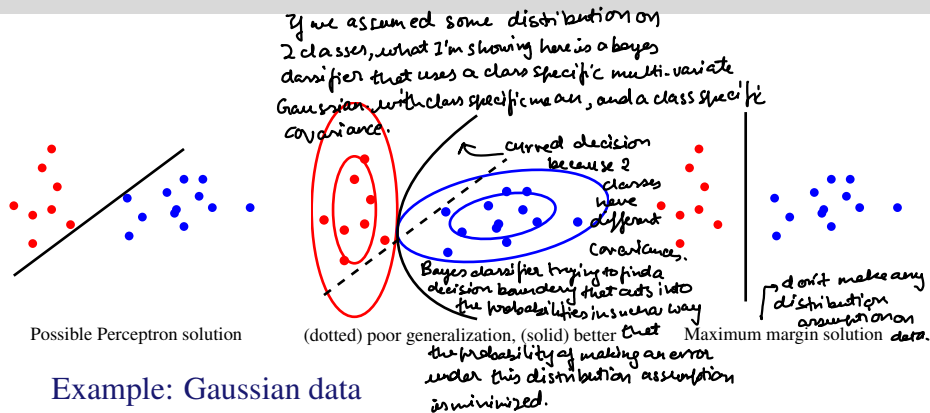 If we assumed some distribution on
2 classes, what I'm showing here is a bayes
classifier that uses a class specific multi-variate
Gaussian with class specific mean, and a class specific
covariance.
curved decision
because 2
classes
have
different
covariances.
Bayes classifier trying to find a
decision boundary that cuts into
the probabilities in such a way
that
the probability of making an error
under this distribution assumption
is minimized.
don't make any
distribution
assumption on
data.
Possible Perceptron solution
(dotted) poor generalization, (solid) better
Maximum margin solution
Example: Gaussian data